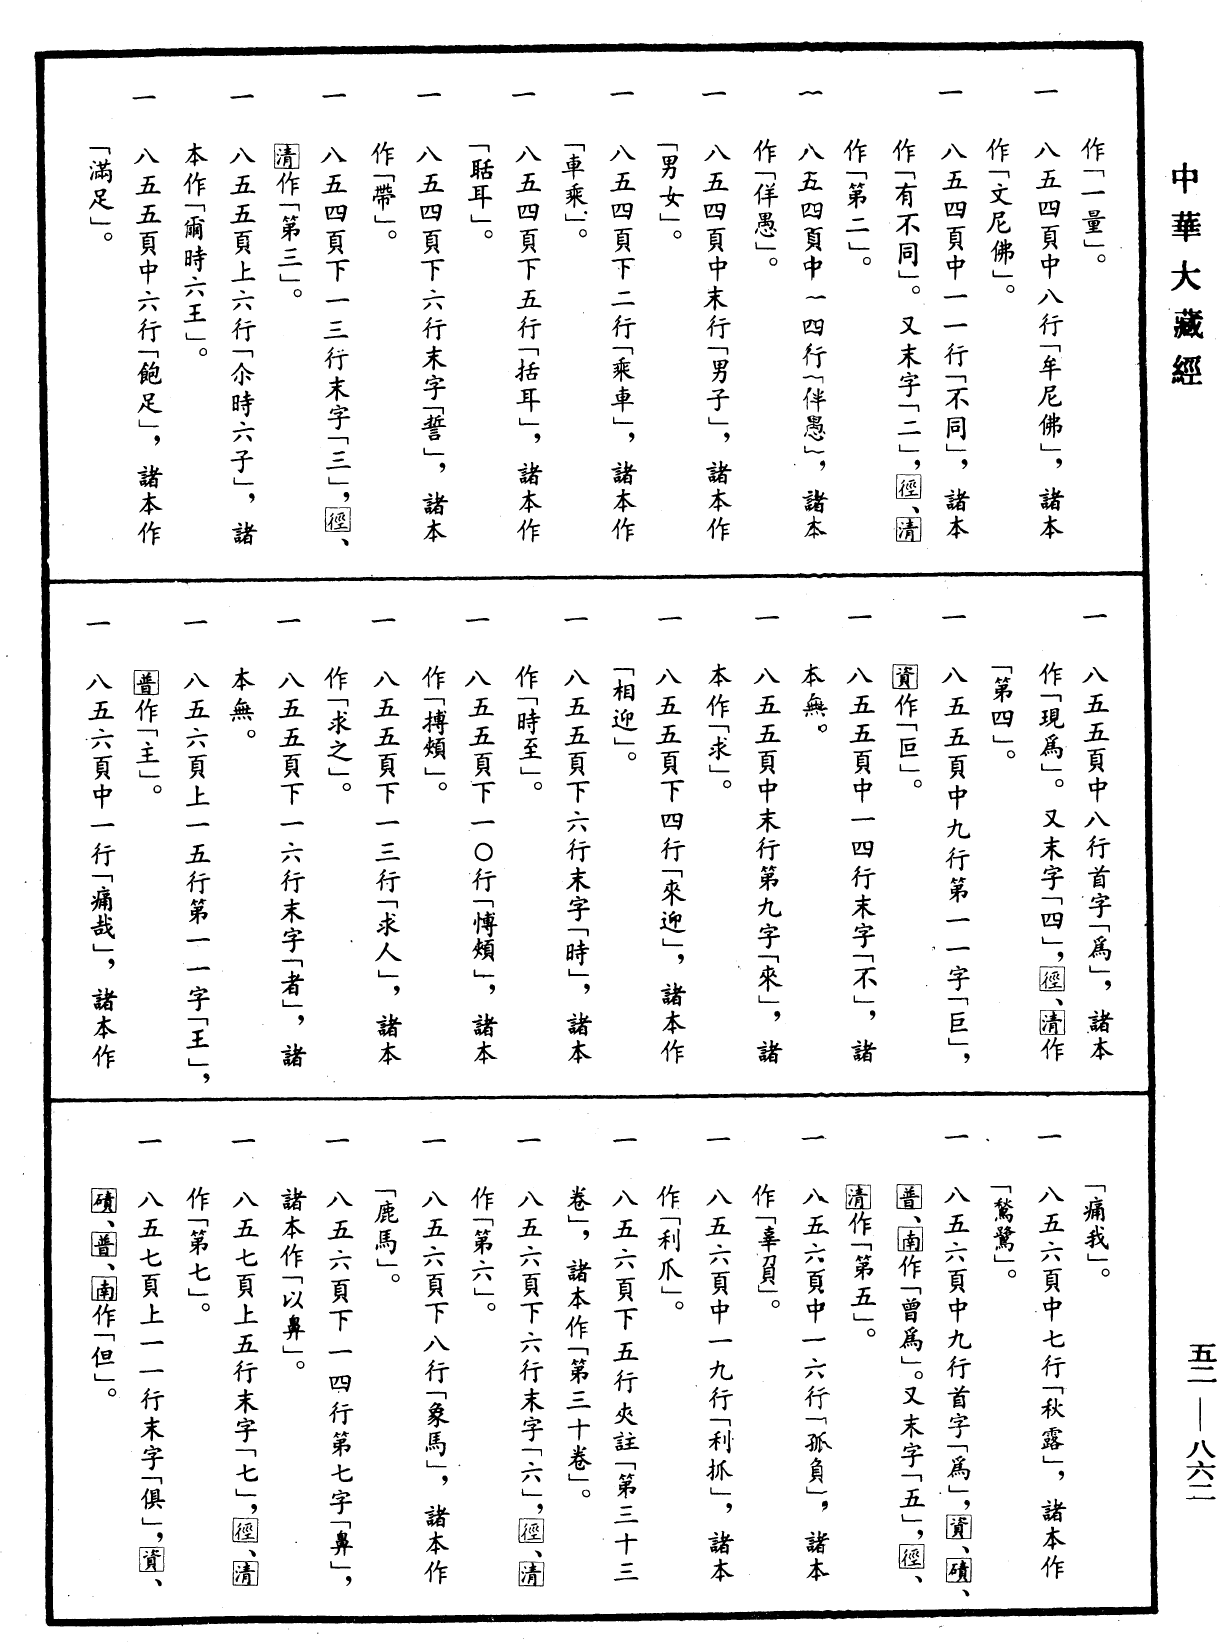 中華大藏經
作「一量」。
一　八五四頁中八行「牟尼佛」，諸本
作「文尼佛」。
一　八五四頁中一一行「不同」，諸本
作「有不同」。又末字「二」，徑、清
作「第二」。
一　八五四頁中一四行「伴愚」，諸本
作「佯愚」。
一　八五四頁中末行「男子」，諸本作
「男女」。
一　八五四頁下二行「乘車」，諸本作
「車乘」。
一　八五四頁下五行「括耳」，諸本作
「聒耳」。
一　八五四頁下六行末字「誓」，諸本
作「帶」。
一　八五四頁下一三行末字「三」，徑、
清作「第三」。
一　八五五頁上六行「尒時六子」，諸
本作「爾時六王」。
一　八五五頁中六行「飽足」，諸本作
「滿足」。
一　八五五頁中八行首字「爲」，諸本
作「現爲」。又末字「四」，徑、清作
「第四」。
一　八五五頁中九行第一一字「巨」，
資作「叵」。
一　八五五頁中一四行末字「不」，諸
本無。
一　八五五頁中末行第九字「來」，諸
本作「求」。
一　八五五頁下四行「來迎」，諸本作
「相迎」。
一　八五五頁下六行末字「時」，諸本
作「時至」。
一　八五五頁下一〇行「愽頰」，諸本
作「搏頰」。
一　八五五頁下一三行「求人」，諸本
作「求之」。
一　八五五頁下一六行末字「者」，諸
本無。
一　八五六頁上一五行第一一字「王」，
普作「主」。
一　八五六頁中一行「痛哉」，諸本作
「痛我」。
一　八五六頁中七行「秋露」，諸本作
「鶖鷺」。
一　八五六頁中九行首字「爲」，資、磧、
普、南作「曾爲」。又末字「五」，徑、
清作「第五」。
一　八五六頁中一六行「孤負」，諸本
作「辜負」。
一　八五六頁中一九行「利抓」，諸本
作「利爪」。
一　八五六頁下五行夾註「第三十三
卷」，諸本作「第三十卷」。
一　八五六頁下六行末字「六」，徑、清
作「第六」。
一　八五六頁下八行「象馬」，諸本作
「鹿馬」。
一　八五六頁下一四行第七字「鼻」，
諸本作「以鼻」。
一　八五七頁上五行末字「七」，徑、清
作「第七」。
一　八五七頁上一一行末字「俱」，資、
磧、普、南作「但」。
五二—八六二